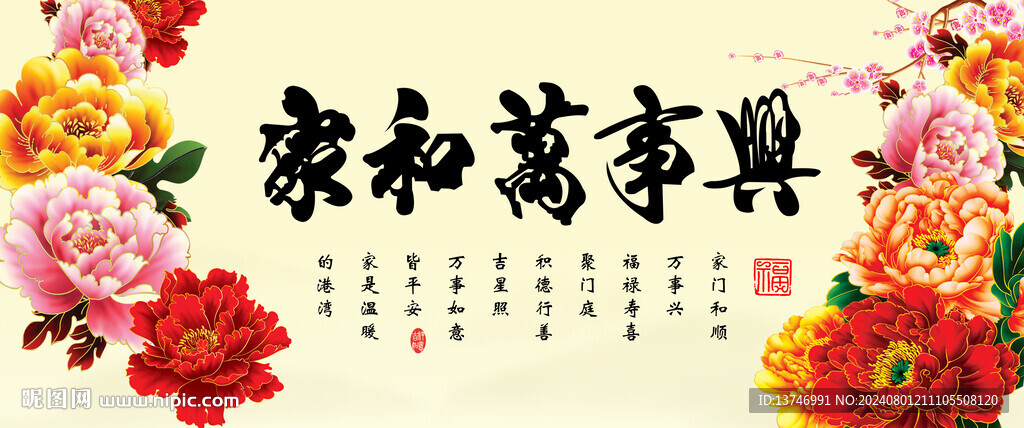 家和萬事興
家门和顺
万事兴
福禄寿喜
聚门庭
积德行善
吉星照
万事如意
皆平安
家是温暖
的港湾
福
昵图网 www.hipic.com
ID:13746991 NO:20240801211105508120